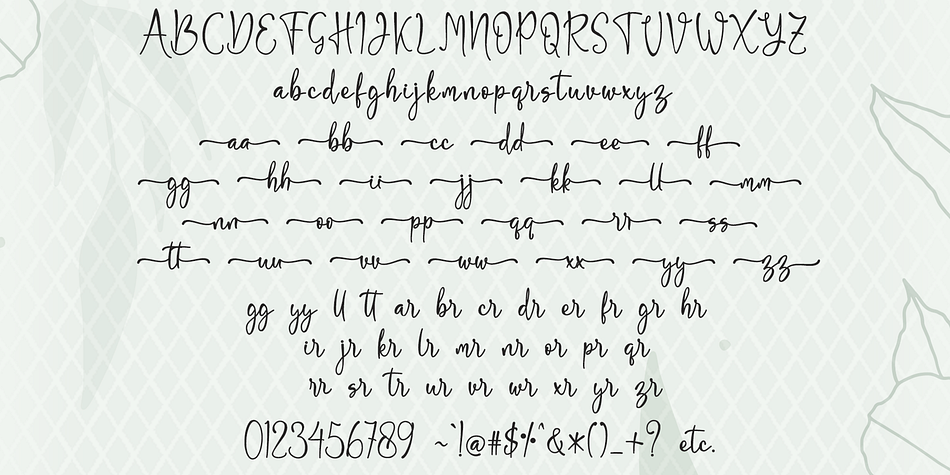 ABCDEFGHIJKLMNOPQRSTUVWXYZ
abcdefghijkmnopqrstuvwxyz
aa bb cc dd ee ff
gg hh ii jj kk ll mm
nn oo pp qq rr ss
tt uu vv ww xx yy zz
gg yy ll tt ar br cr dr er fr gr hr
ir jr kr lr mr nr or pr qr
rr sr tr ur vr wr xr yr zr
0123456789 ~`!@#$%^&*()_+? etc.